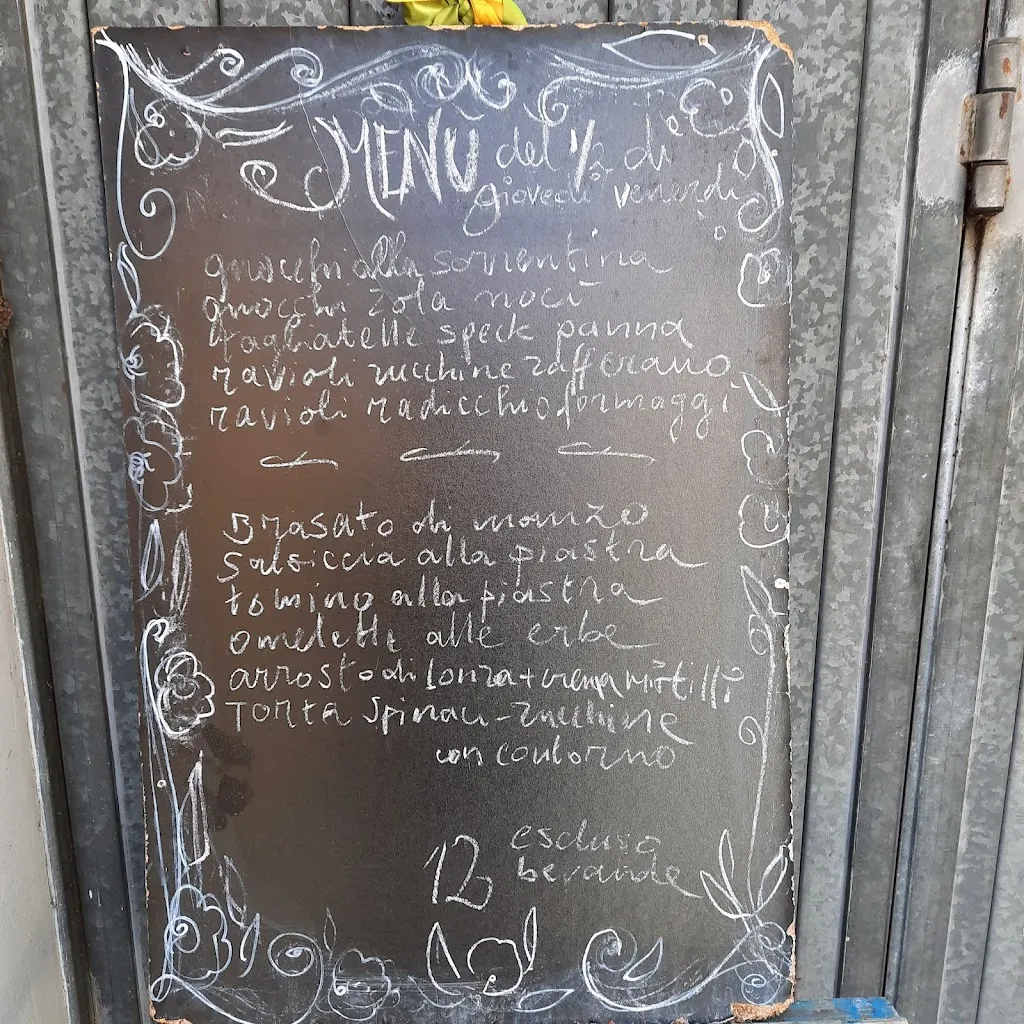 MENÙ del 1/2 dì
giovedì e venerdì
gnocchi alla sorrentina
gnocchi zola noci
tagliatelle speck panna
ravioli zucchine zafferano
ravioli radicchio formaggi
Brasato di manzo
Salsiccia alla piastra
tomino alla piastra
omelette alle erbe
arrosto di Lonza + crema Mirtilli
TORTA Spinaci - zucchine
con contorno
12 escluso
bevande